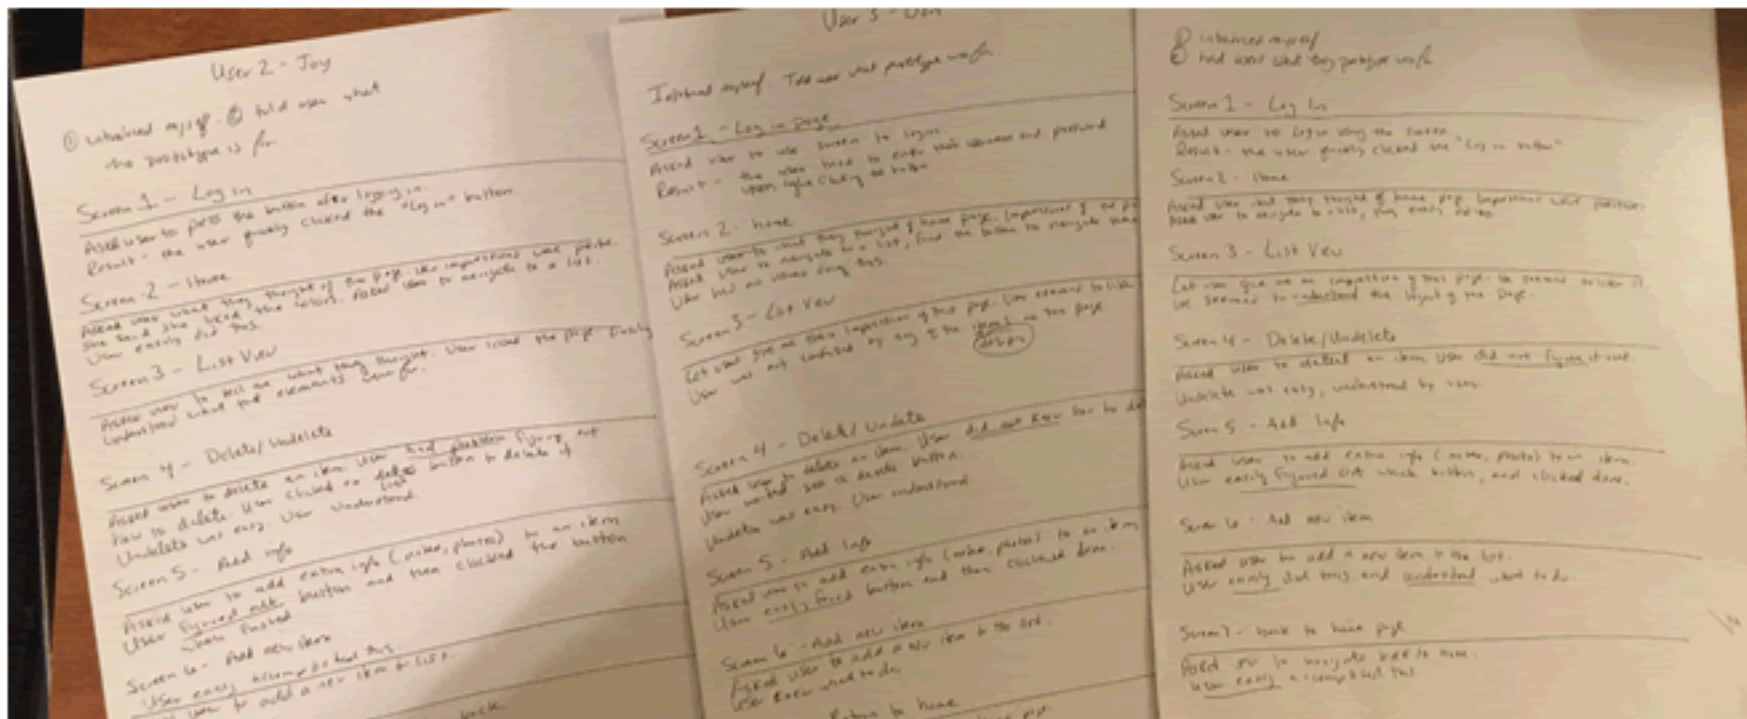 User 2 - Joy
① introduced myself. ② told user what
the prototype is for
Screen 1 - Log in
Asked user to press the button after logging in.
Result - the user quickly clicked the "Log in" button
Screen 2 - Home
Asked user what they thought of the page. User impressions were positive.
She said she liked the colors. Asked user to navigate to a list.
User easily did this.
Screen 3 - List View
Asked user to tell me what they thought. User liked the page. Easily
understood what the elements were for.
Screen 4 - Delete/Undelete
Asked user to delete an item. User had problem figuring out
how to delete. User clicked on button to delete it
Undelete was easy. User understood.
Screen 5 - Add info
Asked user to add extra info (notes, photos) to an item
User figured out button and then clicked the button
when finished
Screen 6 - Add new item
User easily accomplished this
user to add a new item to list.
back
User 3 -
Introduced myself. Told user what prototype was for
Screen 1 - Log in page
Asked user to use screen to login.
Result - the user tried to enter their username and password
before clicking the button
Screen 2 - home
Asked user what they thought of home page. Impressions of the
Asked user to navigate to a list, find the button to navigate
User had no issues doing this.
Screen 3 - List View
Let user give me their impression of this page. User seemed to like
User was not confused by any of the items on the page
Screen 4 - Delete/Undelete
Asked user to delete an item. User did not know how to
User wanted to see a delete button.
Undelete was easy. User understood.
Screen 5 - Add info
Asked user to add extra info (notes, photos) to an item
User easily found button and then clicked done.
Screen 6 - Add new item
Asked user to add a new item to the list.
User knew what to do.
Return to home
① introduced myself
② told user what they prototype was for
Screen 1 - Log In
Asked user to login using the screen
Result - the user quickly clicked the "Log in button"
Screen 2 - Home
Asked user what they thought of home page. Impressions were positive
Asked user to navigate to a list, they easily did so
Screen 3 - List View
Let user give me an impression of this page. He seemed to like it.
He seemed to understand the layout of the page.
Screen 4 - Delete/Undelete
Asked user to delete an item. User did not figure it out.
Undelete was easy, understood by user.
Screen 5 - Add info
Asked user to add extra info (notes, photos) to an item.
User easily figured out which button, and clicked done.
Screen 6 - Add new item
Asked user to add a new item to the list.
User easily did this and understood what to do.
Screen 7 - back to home page
Asked user to navigate back to home.
User easily accomplished this.